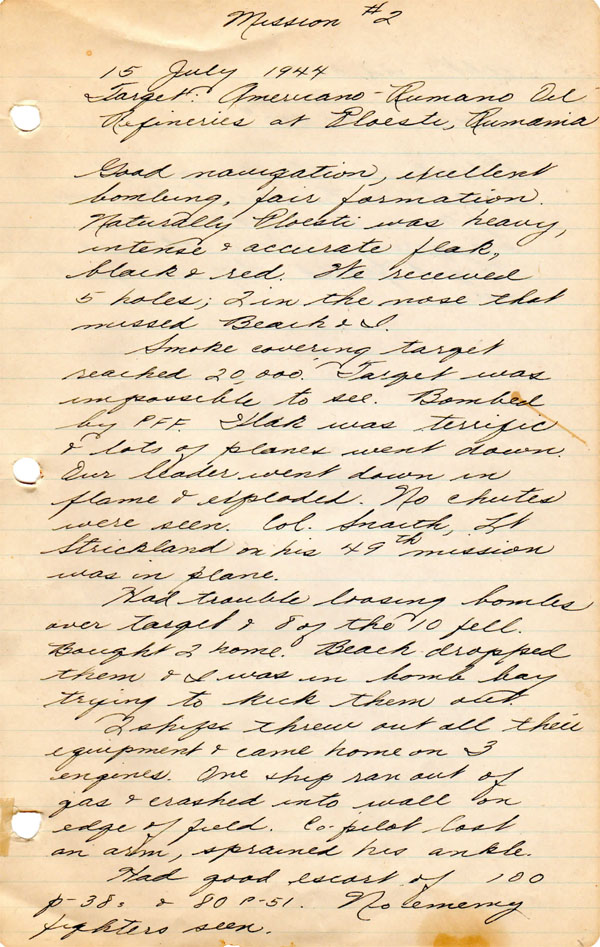 Mission #2
15 July 1944
Target: Americano-Rumano Oil
Refineries at Ploesti, Rumania
Good navigation, exellent
bombing, fair formation.
Naturally Ploesti was heavy,
intense & accurate flak,
black & red. We received
5 holes; 2 in the nose that
missed Beach & I.
Smoke covering target
reached 20,000'. Target was
impossible to see. Bombed
by PFF. Flak was terrific
& lots of planes went down.
Our leader went down in
flame & exploded. No chutes
were seen. Col. Snaith, Lt
Strickland on his 49th mission
was in plane.
Had trouble loosing bombs
over target & 8 of the 10 fell.
Bought 2 home. Beach dropped
them & I was in bomb bay
trying to kick them out.
2 ships threw out all their
equipment & came home on 3
engines. One ship ran out of
gas & crashed into wall on
edge of field. Co-pilot lost
an arm, sprained his ankle.
Had good escort of 100
p-38s & 80 P-51. No ememy
fighters seen.